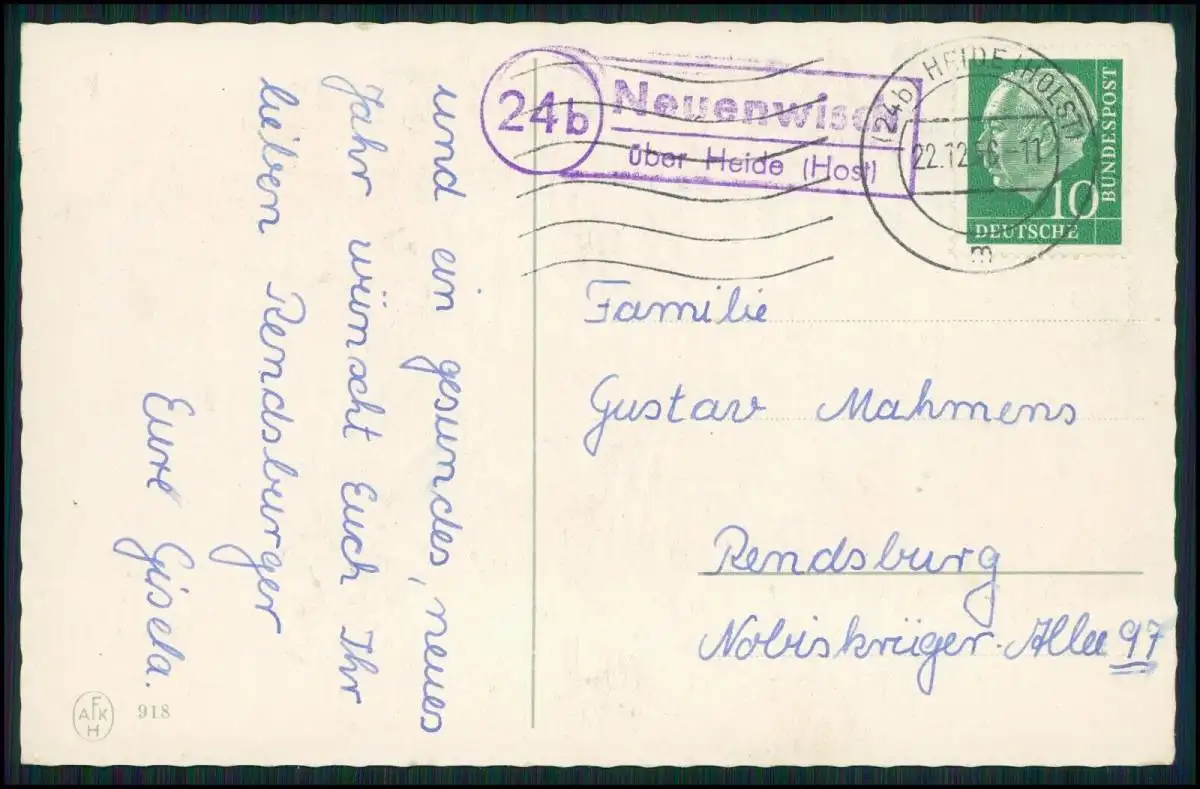 und ein gesundes, neues
Jahr wünscht Euch Ihr
lieben Rendsburger
Eure Gisela.
AFKH 918
24b Neuenwisch
über Heide (Holst)
(24b) HEIDE (HOLST)
22.12.56.-11
m
10
DEUTSCHE
BUNDESPOST
Familie
Gustav Mahmens
Rendsburg
Nobiskrüger-Allee 97